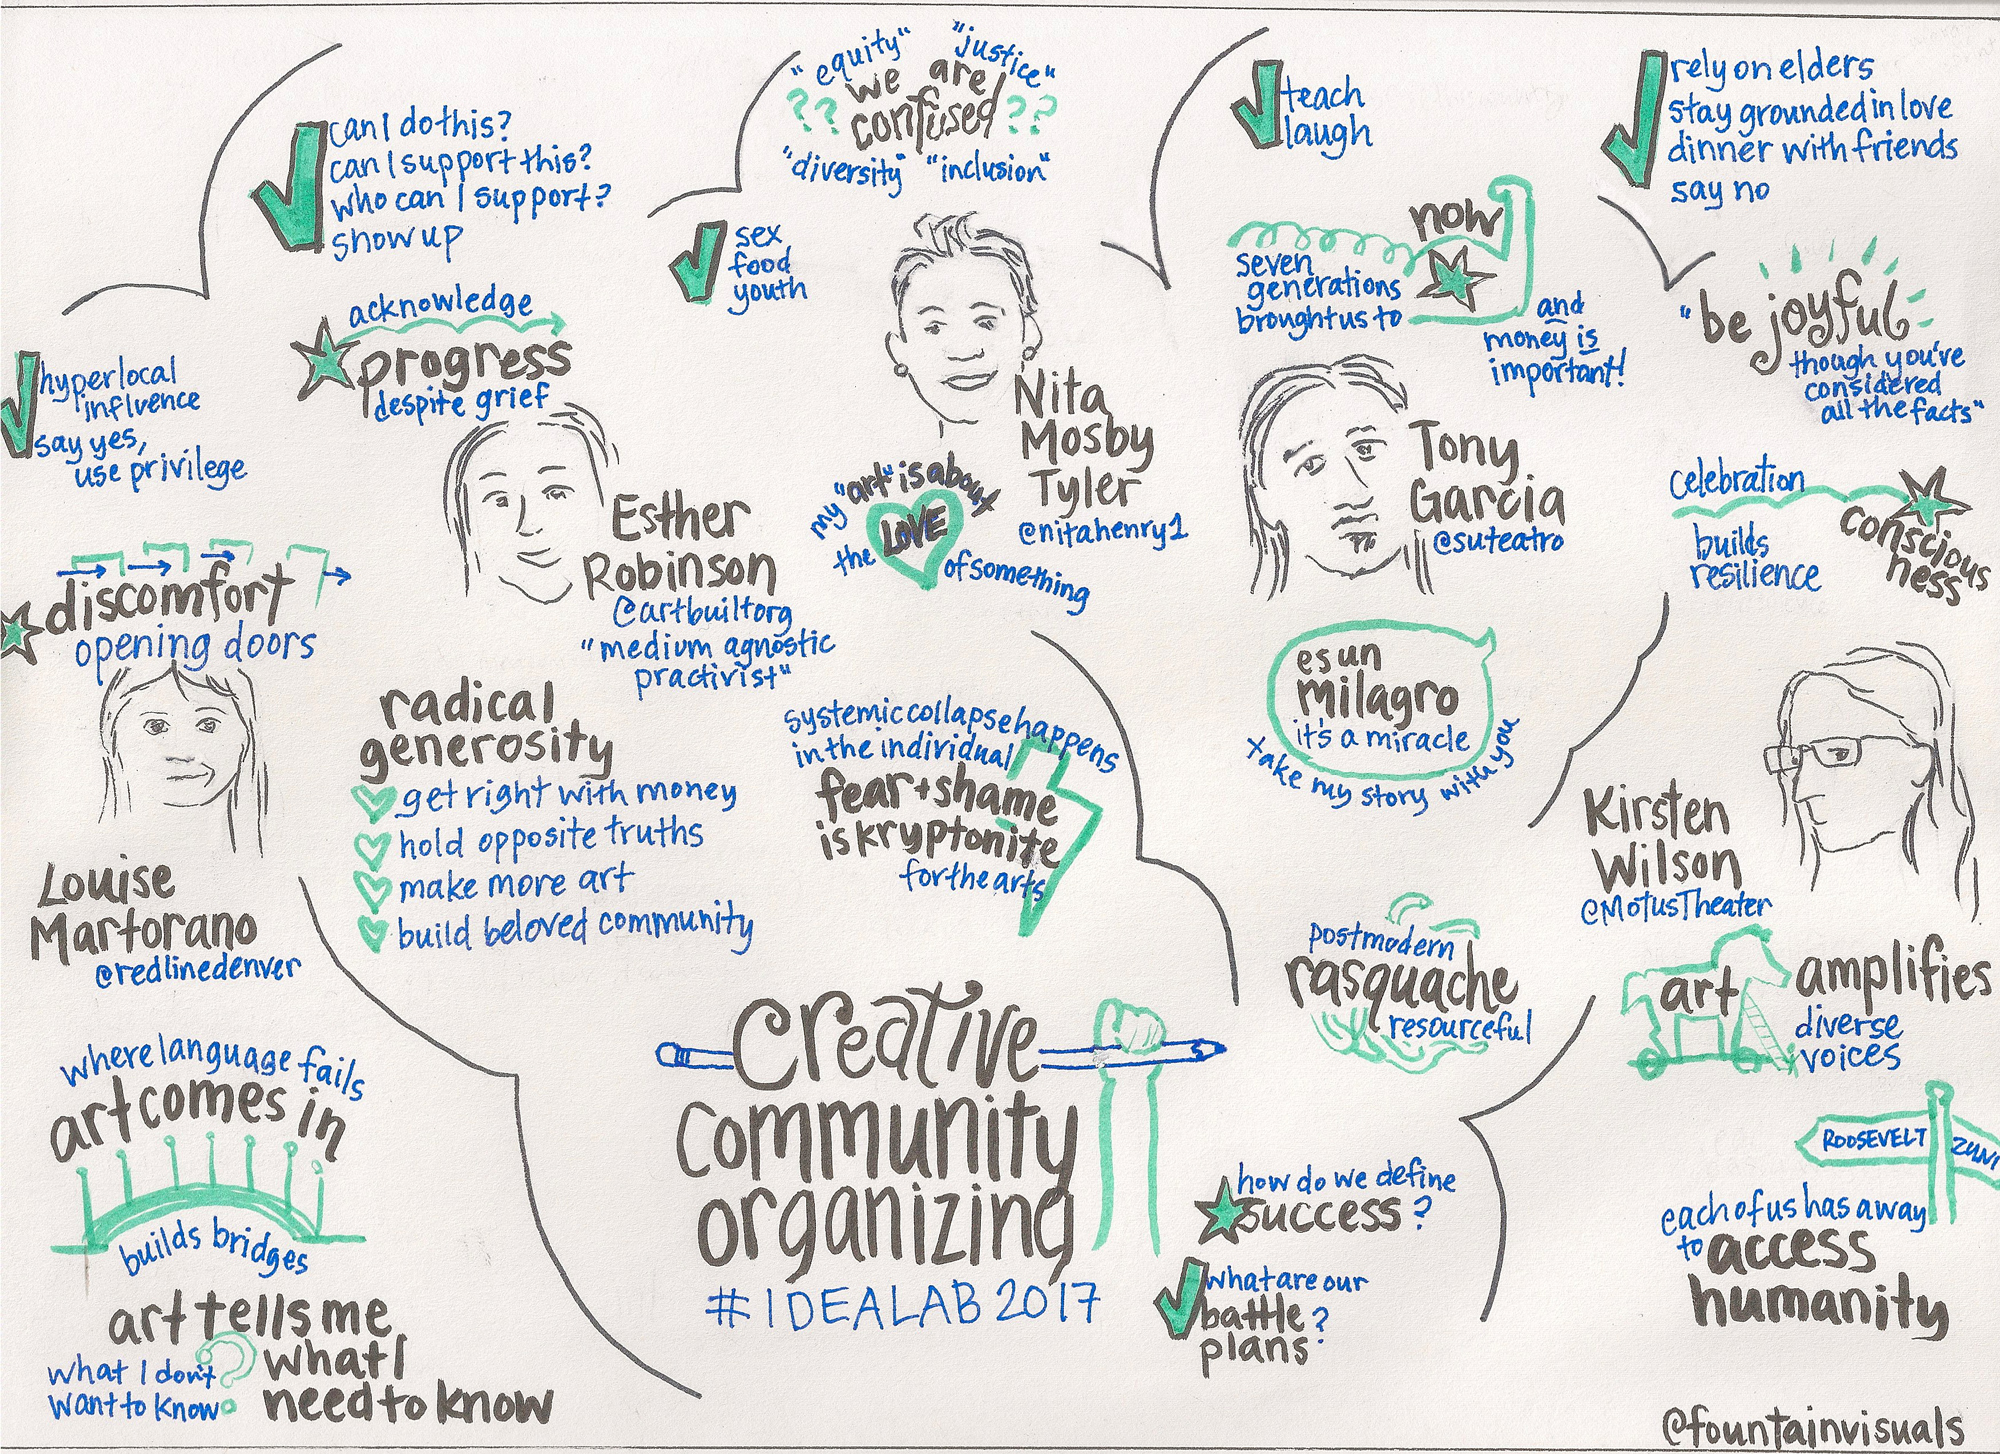 hyperlocal
influence
say yes,
use privilege
discomfort
opening doors
Louise
Martorano
@redlinedenver
where language fails
art comes in
builds bridges
art tells me
what I
need to know
what I don't
want to know
can I do this?
can I support this?
who can I support?
show up
acknowledge
progress
despite grief
Esther
Robinson
@artbuiltorg
"medium agnostic
practivist"
radical
generosity
get right with money
hold opposite truths
make more art
build beloved community
"equity" "justice"
we are
?? confused ??
"diversity" "inclusion"
sex
food
youth
Nita
Mosby
Tyler
@nitahenry1
my "art" is about
the LOVE of something
systemic collapse happens
in the individual
fear + shame
is kryptonite
for the arts
teach
laugh
now
seven
generations
brought us to
and
money is
important!
Tony
Garcia
@suteatro
es un
milagro
it's a miracle
take my story with you
postmodern
rasquache
resourceful
rely on elders
stay grounded in love
dinner with friends
say no
"be joyful
though you've
considered
all the facts"
celebration
consciousness
builds
resilience
Kirsten
Wilson
@MotusTheater
art amplifies
diverse
voices
ROOSEVELT
ZUNI
each of us has a way
to access
humanity
Creative
community
organizing
#IDEALAB2017
how do we define
success?
what are our
battle?
plans
@fountainvisuals